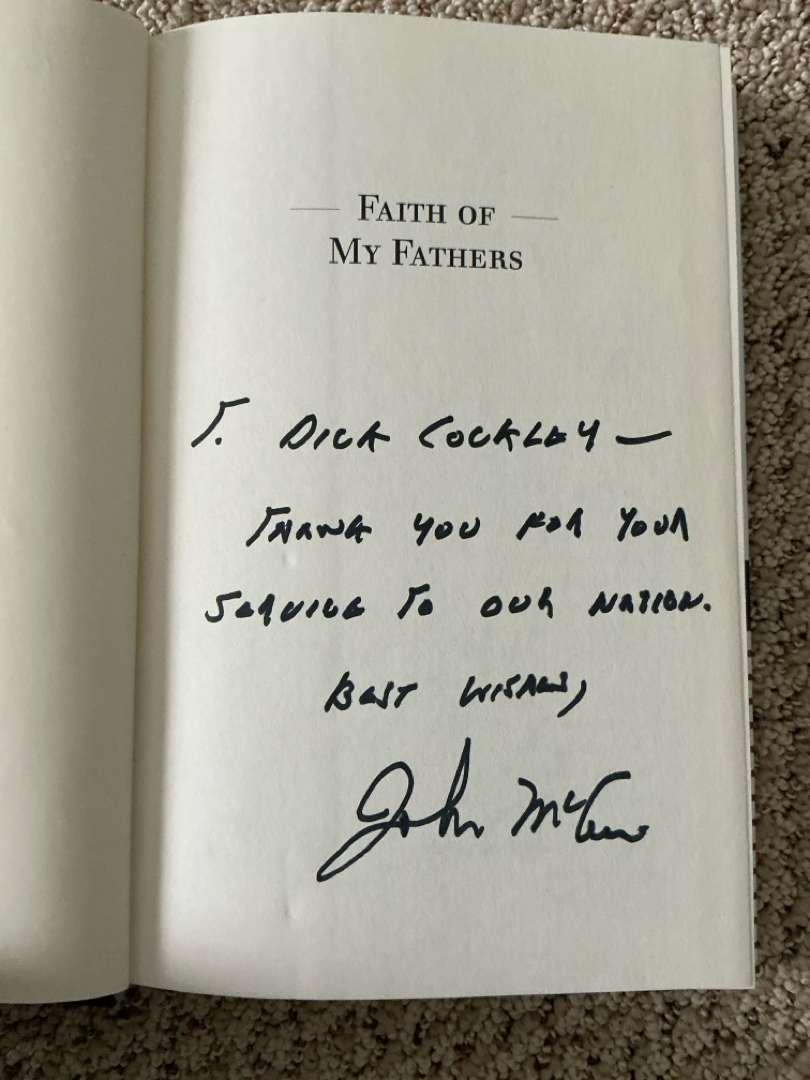 FAITH OF
MY FATHERS
To DICK COCKLEY —
THANK YOU FOR YOUR
SERVICE TO OUR NATION.
BEST WISHES,
John McCain